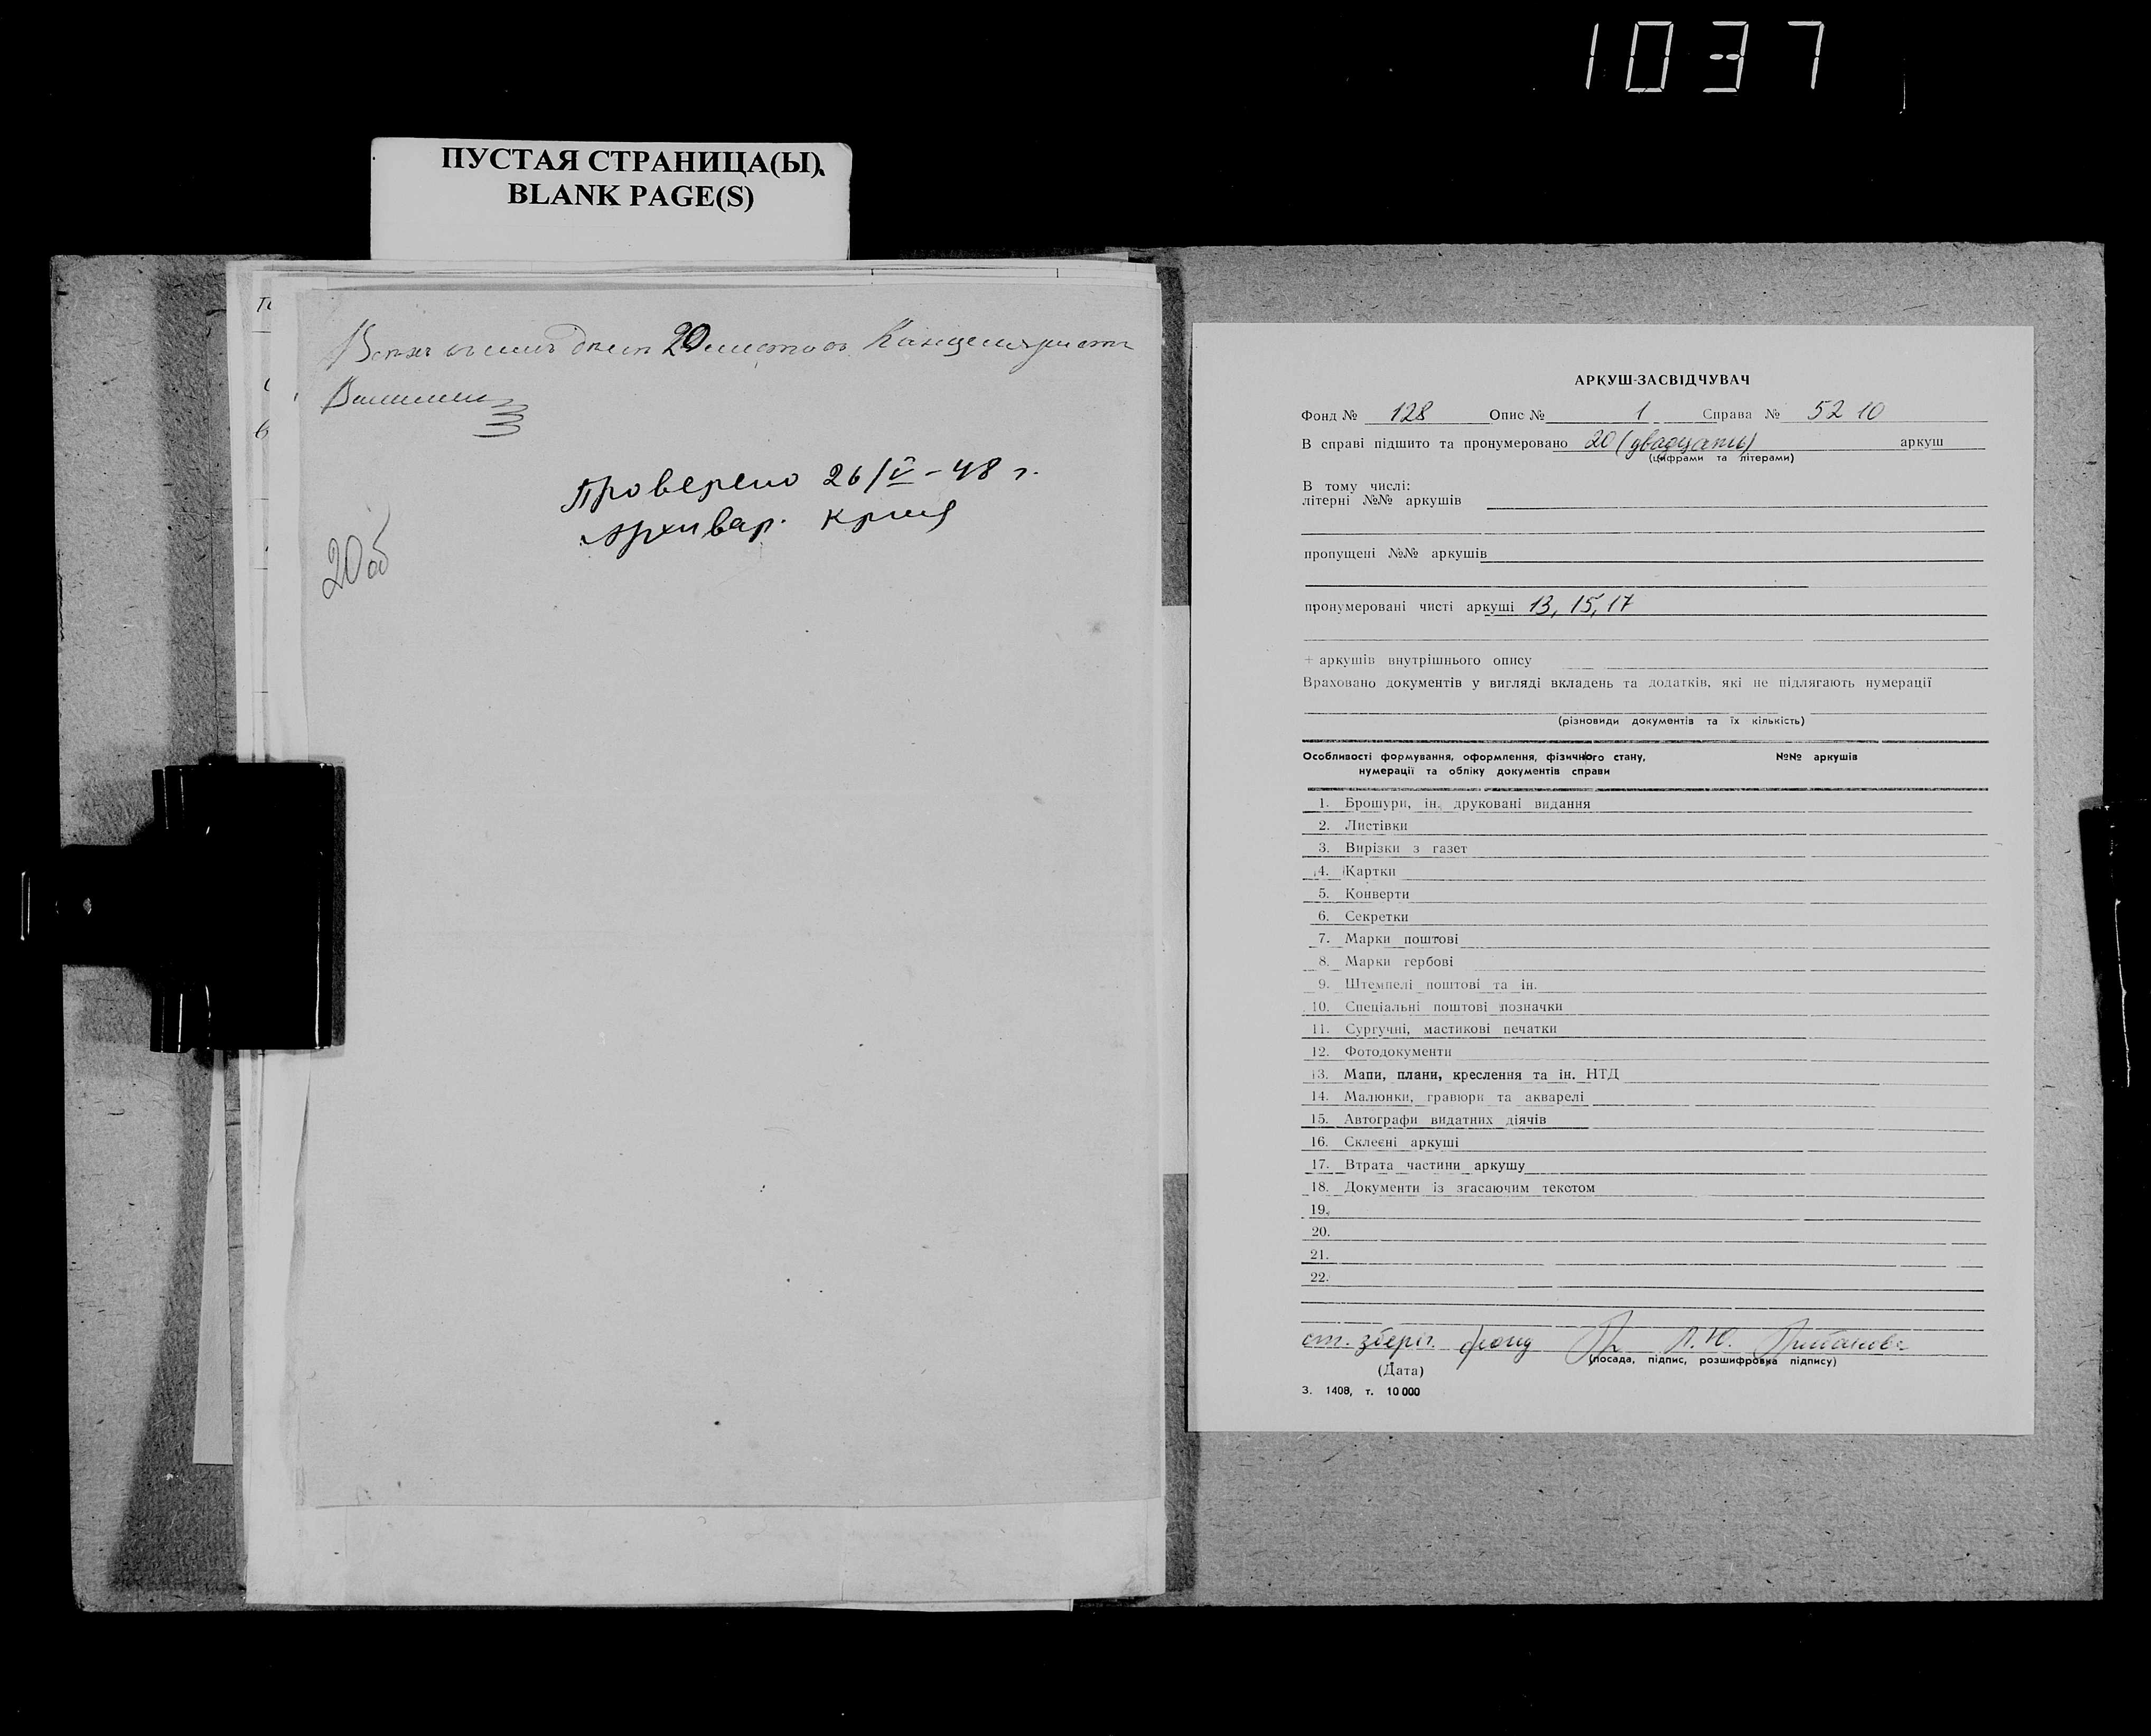 1037
ПУСТАЯ СТРАНИЦА(Ы)
BLANK PAGE(S)
Всехъ въ семъ делѣ 20 листовъ. Канцеляристъ
Проверено 26/V – 48 г.
Архивар.
20об
АРКУШ-ЗАСВІДЧУВАЧ
Фонд № 128 Опис № 1 Справа № 5210
В справі підшито та пронумеровано 20 (двадцать) аркуш
(цифрами та літерами)
В тому числі:
літерні №№ аркушів
пропущені №№ аркушів
пронумеровані чисті аркуші 13, 15, 17
+ аркушів внутрішнього опису
Враховано документів у вигляді вкладень та додатків, які не підлягають нумерації
(різновиди документів та їх кількість)
Особливості формування, оформлення, фізичного стану, №№ аркушів
нумерації та обліку документів справи
1. Брошури, ін. друковані видання
2. Листівки
3. Вирізки з газет
4. Картки
5. Конверти
6. Секретки
7. Марки поштові
8. Марки гербові
9. Штемпелі поштові та ін.
10. Спеціальні поштові позначки
11. Сургучні, мастикові печатки
12. Фотодокументи
13. Мапи, плани, креслення та ін. НТД
14. Малюнки, гравюри та акварелі
15. Автографи видатних діячів
16. Склеєні аркуші
17. Втрата частини аркушу
18. Документи із згасаючим текстом
19.
20.
21.
22.
ст. зберіг. фонд Л. Ю.
(посада, підпис, розшифровка підпису)
(Дата)
З. 1408, т. 10 000